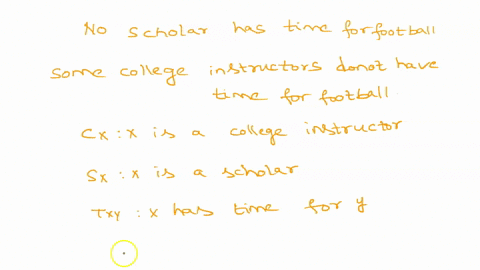 No scholar has time for football
some college instructors donot have
time for football
Cx : x is a college instructor
Sx : x is a scholar
Txy : x has time for y